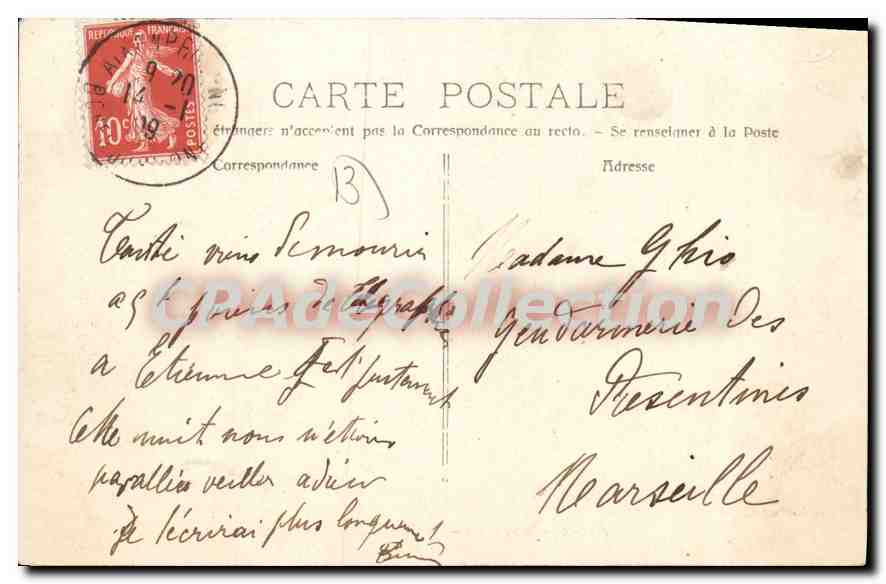 REPUBLIQUE FRANÇAISE
10c POSTES
9 20
14 -1
19
CARTE POSTALE
étrangers n'acceptent pas la Correspondance au recto. - Se renseigner à la Poste
Correspondance
Adresse
13
Tanté viens de mourir
a 5 h prières de
a Etienne justement
Cette nuit nous n'étions
pas allées veiller adieu
je t'écrirai plus longuement
Madame Ghio
Gendarmerie des
Présentines
Marseille
CPAdeCollection